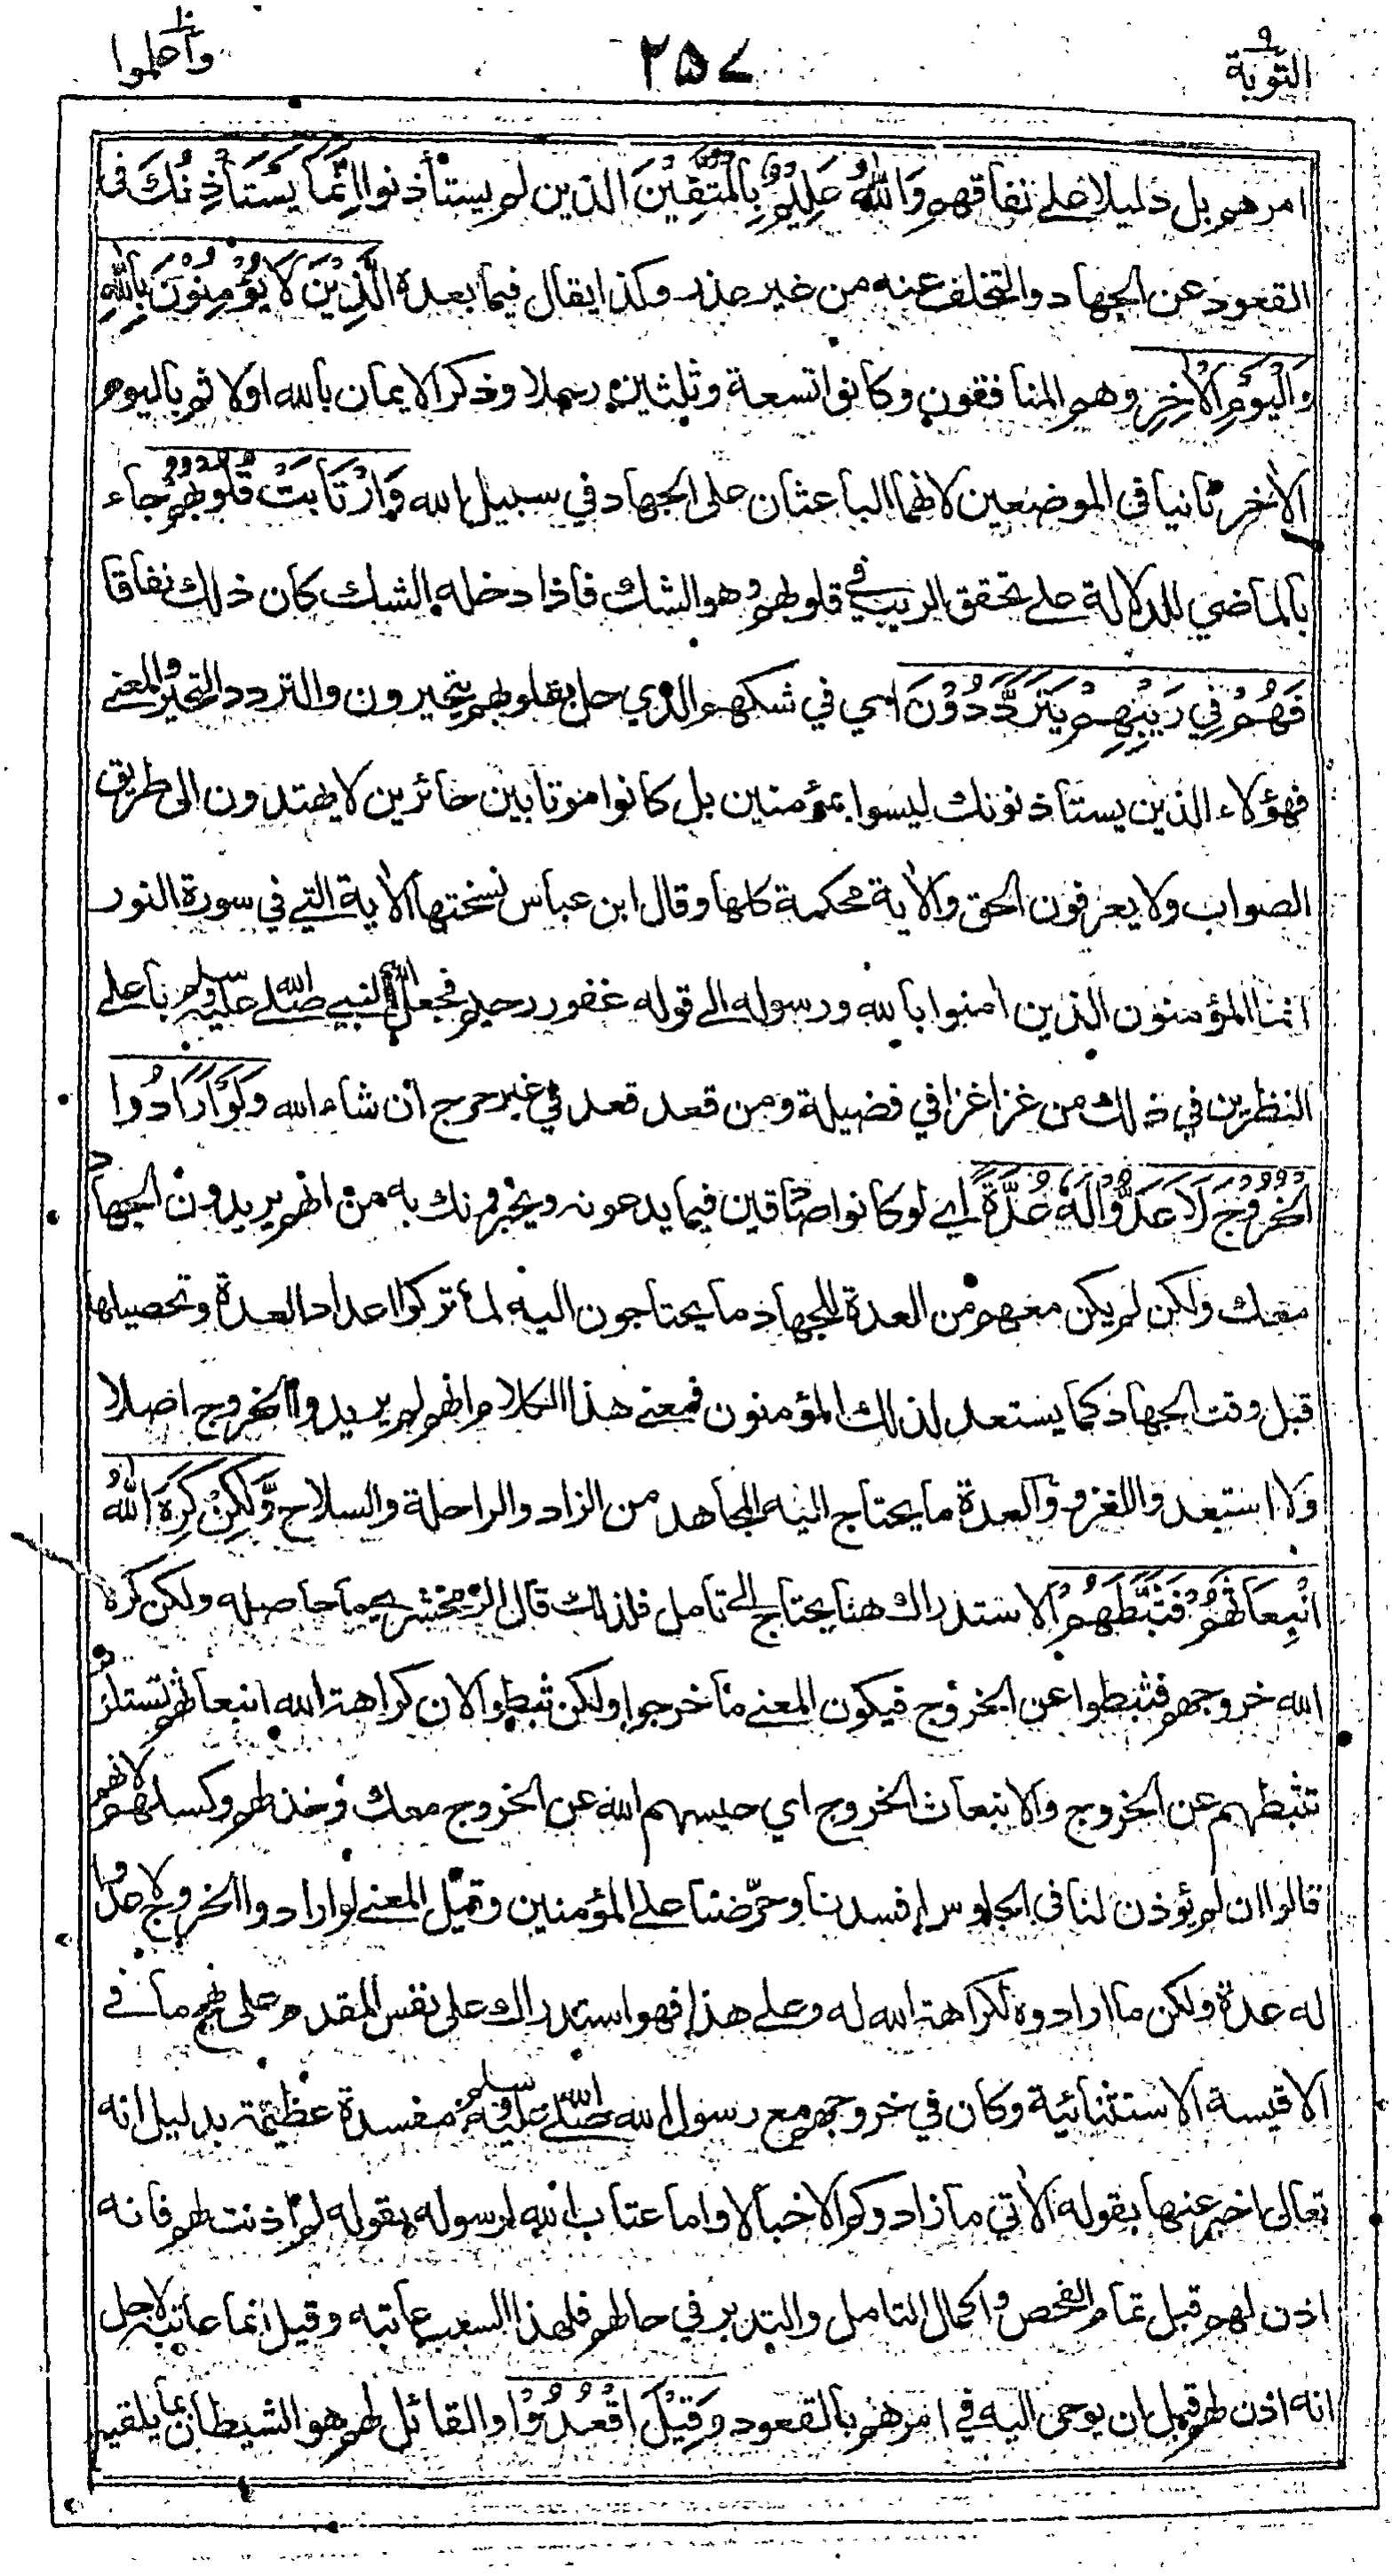 التوبة ٩
٢٥٧
واعلموا
امرهم بل دليلا على نفاقهم وَاللّٰهُ عَلِيْمٌ بِالْمُتَّقِيْنَ الذين لم يستأذنوا اِنَّمَا يَسْتَأْذِنُكَ في
القعود عن الجهاد والتخلف عنه من غير عذر وكذا يقال فيما بعده الَّذِيْنَ لَا يُؤْمِنُوْنَ بِاللّٰهِ
وَالْيَوْمِ الْاٰخِرِ وهم المنافقون وكانوا تسعة وثلثين رجلا وذكر الايمان بالله اولا ثم باليوم
الاٰخر ثانيا في الموضعين لانهما الباعثان على الجهاد في سبيل الله وَارْتَابَتْ قُلُوْبُهُمْ جاء
بالماضي للدلالة على تحقق الريب في قلوبهم وهو الشك فاذا دخله الشك كان ذلك نفاقا
فَهُمْ فِيْ رَيْبِهِمْ يَتَرَدَّدُوْنَ اي في شكهم الذي حل بقلوبهم يتحيرون والتردد التحير والمعنى
فهؤلاء الذين يستأذنونك ليسوا بمؤمنين بل كانوا مرتابين حائرين لا يهتدون الى طريق
الصواب ولا يعرفون الحق والاٰية محكمة كلها وقال ابن عباس نسختها الاٰية التي في سورة النور
انما المؤمنون الذين امنوا بالله ورسوله الى قوله غفور رحيم فجعل الله النبي صلى الله عليه وسلم باعلى
النظرين في ذلك من غزا غزا في فضيلة ومن قعد قعد في غير حرج ان شاء الله وَلَوْ اَرَادُوا
الْخُرُوْجَ لَاَعَدُّوْا لَهٗ عُدَّةً اي لو كانوا صادقين فيما يدعونه ويخبرونك به من انهم يريدون الجهاد
معك ولكن لم يكن معهم من العدة للجهاد ما يحتاجون اليه لما تركوا اعداد العدة وتحصيلها
قبل وقت الجهاد كما يستعد لذلك المؤمنون فمعنى هذا الكلام انهم لم يريدوا الخروج اصلا
ولا استعدوا للغزو والعدة ما يحتاج اليه المجاهد من الزاد والراحلة والسلاح وَّلٰكِنْ كَرِهَ اللّٰهُ
انْۢبِعَاثَهُمْ فَثَبَّطَهُمْ الاستدراك هنا يحتاج الى تامل فلذلك قال الزمخشري ما حاصله ولكن كره
الله خروجهم فثبطوا عن الخروج فيكون المعنى ما خرجوا ولكن ثبطوا لان كراهة الله انبعاثهم تستلزم
تثبطهم عن الخروج والانبعاث الخروج اي حبسهم الله عن الخروج معك وخذلهم وكسلهم لانهم
قالوا ان لم يؤذن لنا في الجلوس افسدنا وحرّضنا على المؤمنين وقيل المعنى لو ارادوا الخروج لاعدوا
له عدة ولكن ما ارادوه لكراهة الله له وعلى هذا فهو استدراك على نفس المقدم على نهج ما في
الاقيسة الاستثنائية وكان في خروجهم مع رسول الله صلى الله عليه وسلم مفسدة عظيمة بدليل انه
تعالى اخبر عنها بقوله الاٰتي ما زادوكم الا خبالا واما عتاب الله لرسوله بقوله لم اذنت لهم فانه
اذن لهم قبل تمام الفحص واكمال التامل والتدبر في حالهم فلهذا السبب عاتبه وقيل انما عاتبه لاجل
انه اذن لهم قبل ان يوحى اليه في امرهم بالقعود وَقِيْلَ اقْعُدُوْا والقائل لهم هو الشيطان بما يلقيه